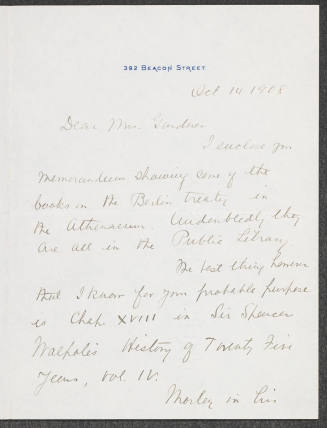 392 BEACON STREET
Oct 14 1908
Dear Mrs. Gardner
I enclose you
memorandum showing some of the
books on the Berlin treaty in
the Athenaeum. Undoubtedly they
are all in the Public Library
The best thing however
that I know for your probable purpose
is Chap XVIII in Sir Spencer
Walpole's History of Twenty Five
Years, Vol. IV.
Morley in his